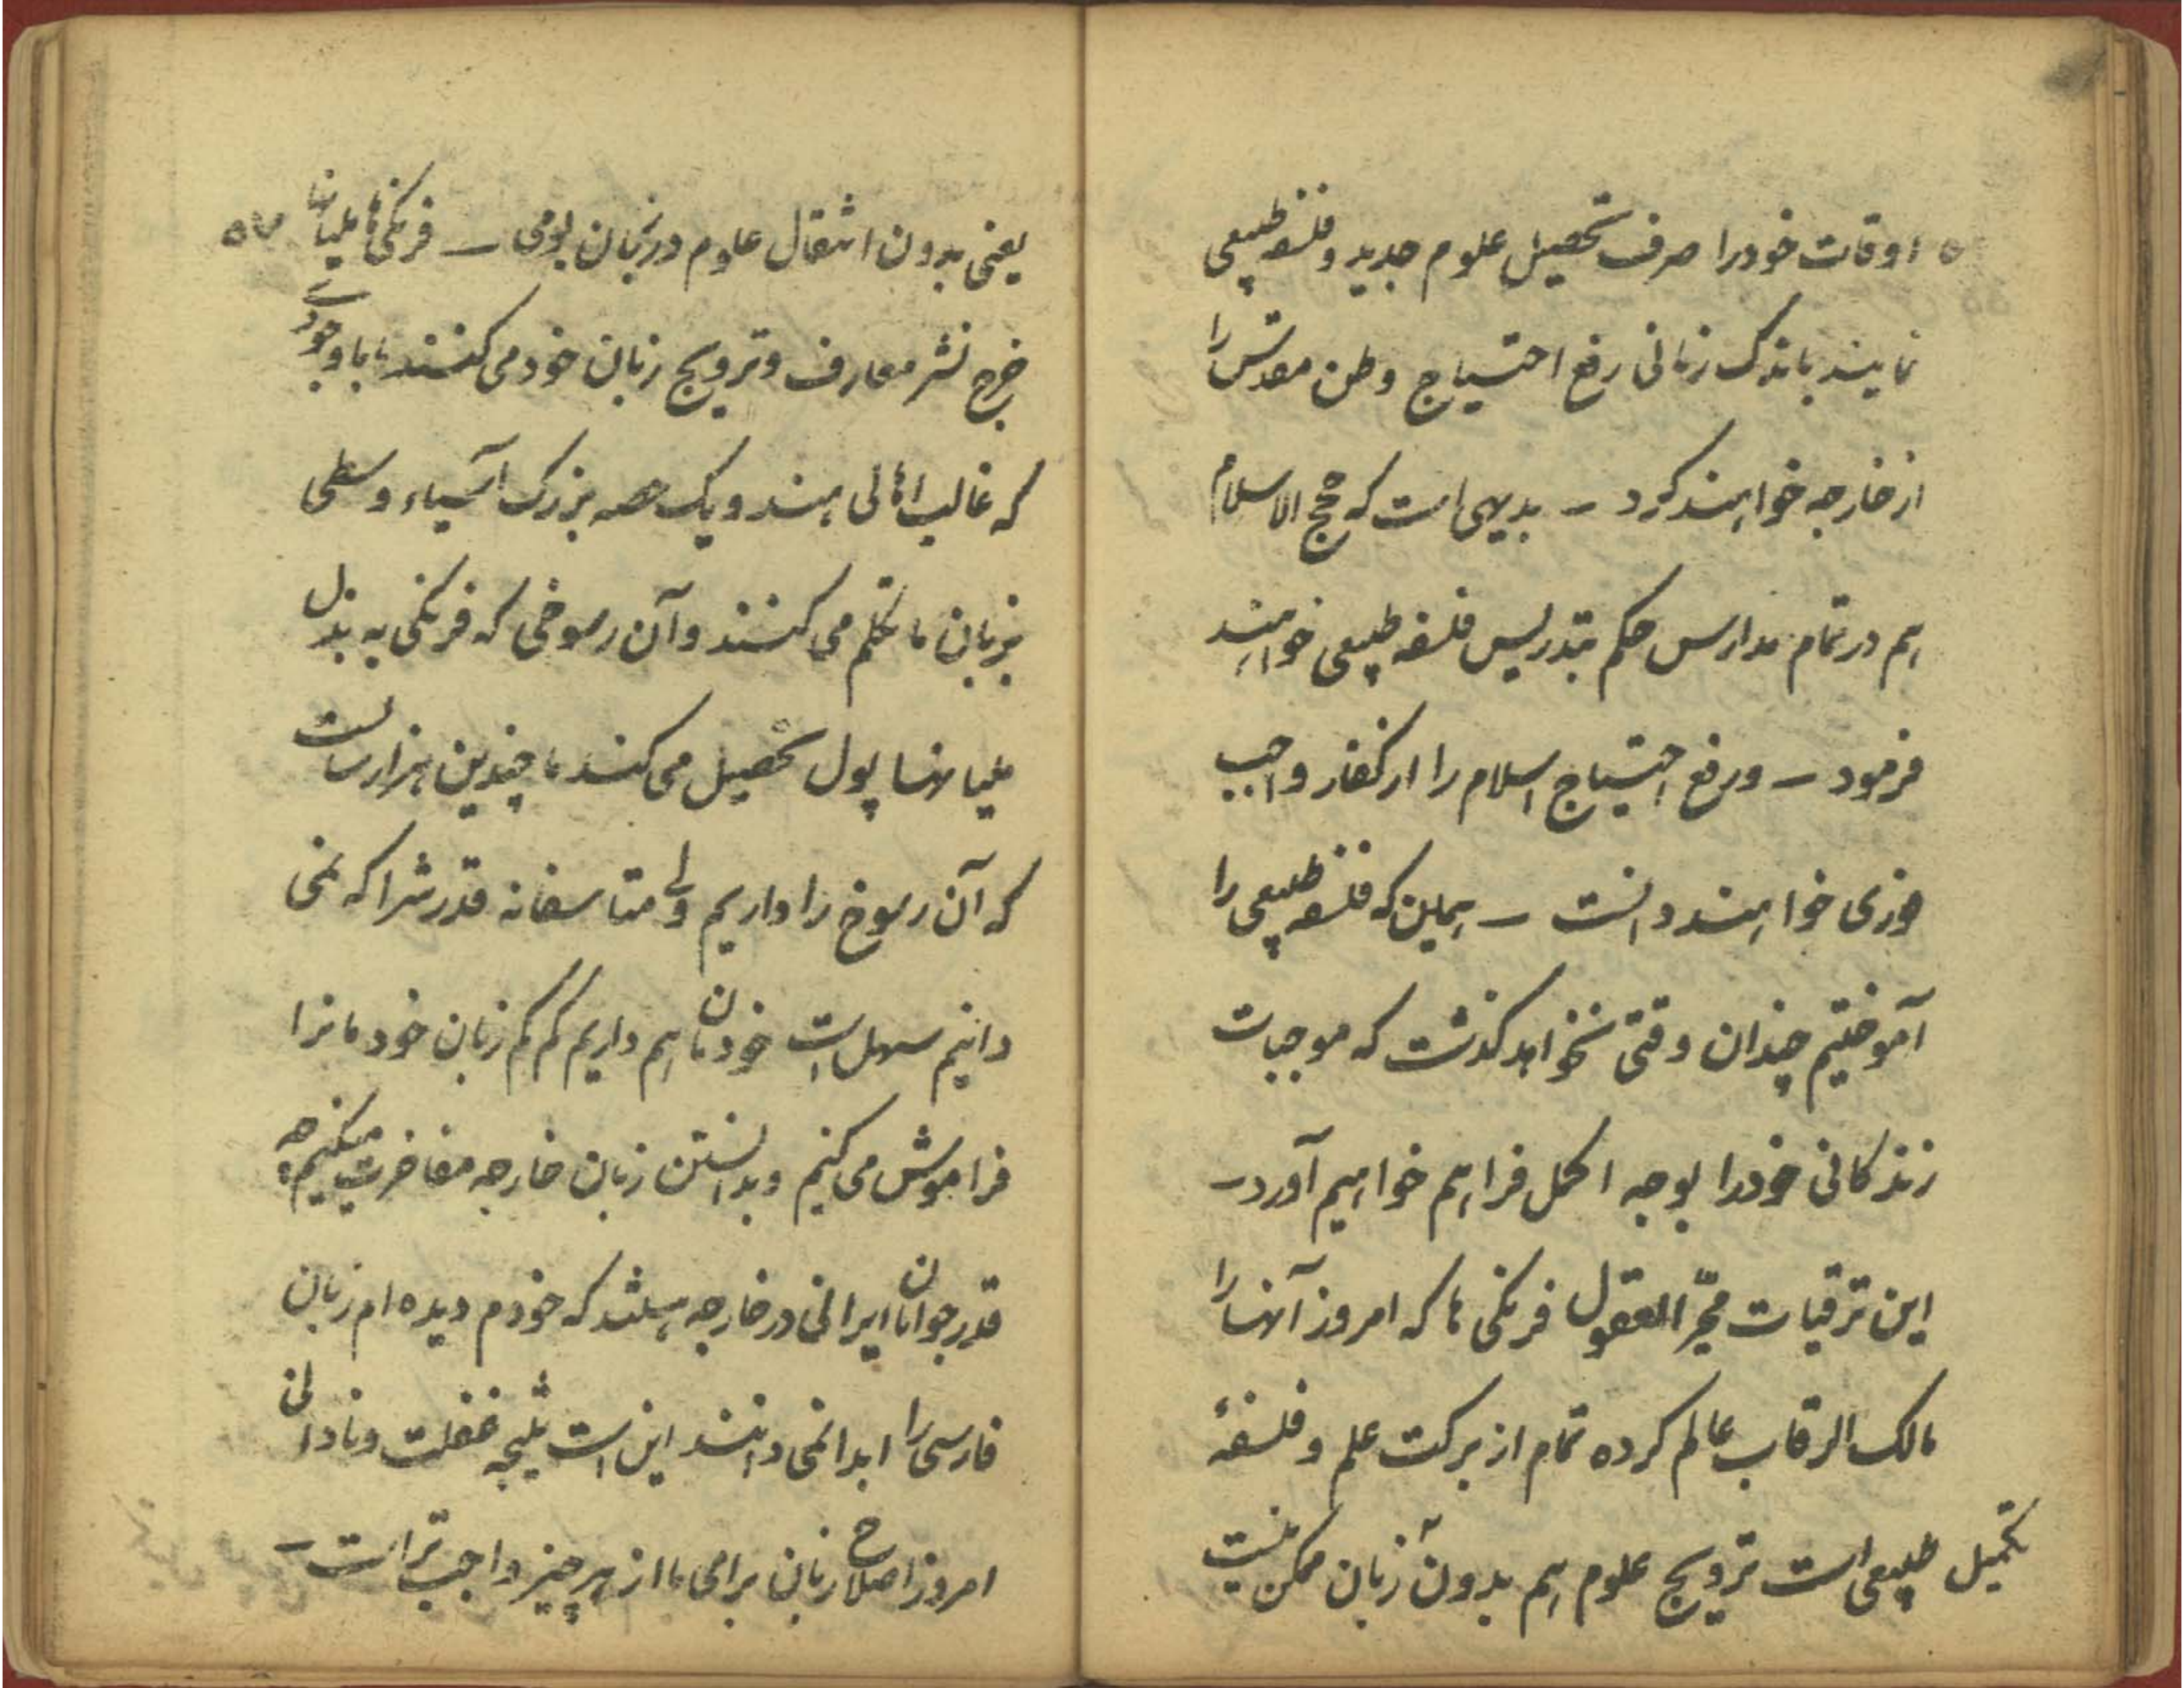 اوقات خودرا صرف تحصیل علوم جدید و فلسفه طبیعی
نمایند باندک زمانی رفع احتیاج وطن مقدس را
از خارجه خواهند کرد – بدیهی است که حجج الاسلام
هم در تمام مدارس حکم بتدریس فلسفه طبیعی خواهند
فرمود – ورفع احتیاج اسلام را از کفار واجب
فوری خواهند دانست – همین که فلسفه طبیعی را
آموختیم چندان وقتی نخواهد کذشت که موجبات
زندکانی خودرا بوجه اکمل فراهم خواهیم آورد –
این ترقیات محیّر العقول فرنکی ها که امروز آنها را
مالک الرقاب عالم کرده تمام از برکت علم و فلسفهٔ
طبیعی است ترویج علوم هم بدون تکمیل زبان ممکن نیست
۵۷
یعنی بدون انتقال علوم در زبان بومی – فرنکی ها ملیانها
خرج نشر معارف و ترویج زبان خود می کنند ما با وجودے
که غالب اهالی هند و یک حصه بزرک آسیاء وسطی
بزبان ما تکلم می کنند و آن رسوخی که فرنکی به بذل
ملیانها پول تحصیل می کند ما چندین هزار سالست
که آن رسوخ را داریم ولی متاسفانه قدرش را که نمی
دانیم سهل است خودمان هم داریم کم کم زبان خودمانرا
فراموش می کنیم و بدانستن زبان خارجه مفاخرت میکنیم چه
قدر جوانان ایرانی در خارجه هستند که خودم دیده ام زبان
فارسی را ابدا نمی دانند این است نتیجه غفلت و نادانی
امروز اصلاح زبان برای ما از هر چیز واجب تر است –